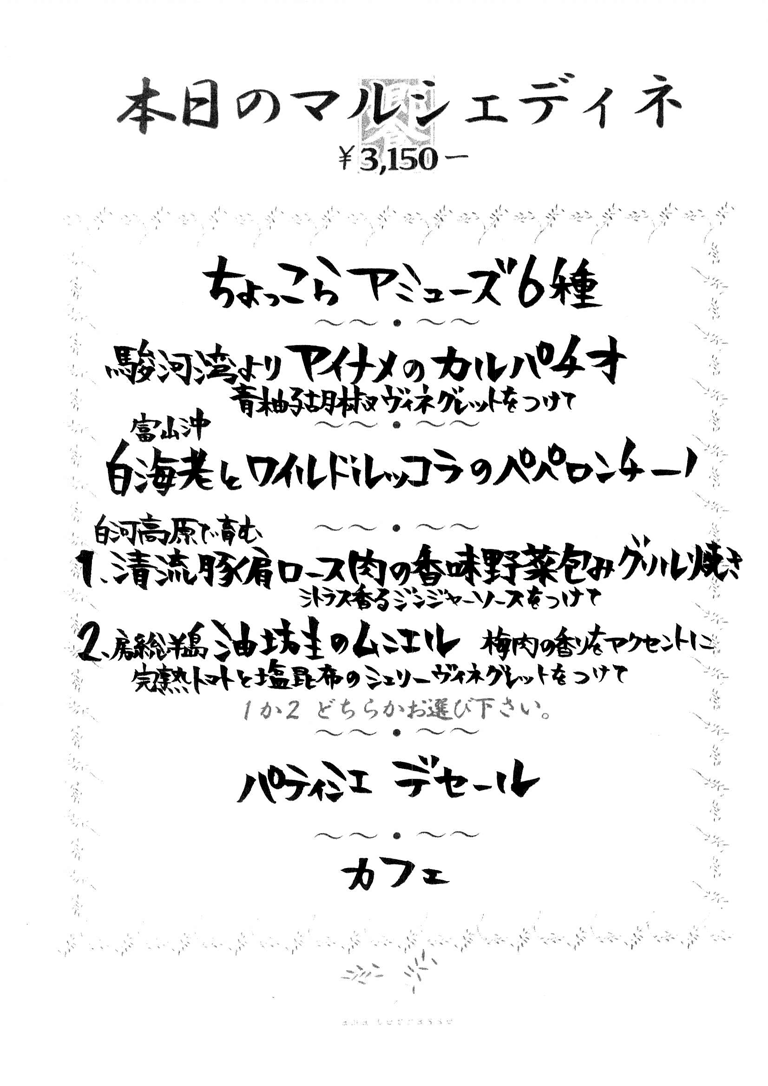 本日のマルシェディネ
¥3,150ー
ちょっこら アミューズ6種
駿河湾より アイナメのカルパチオ
青柚子胡椒ヴィネグレットをつけて
富山沖
白海老とワイルドルッコラのペペロンチーノ
白河高原で育む
1、清流豚肩ロース肉の香味野菜包みグリル焼き
シトラス香るジンジャーソースをつけて
2、房総半島 油坊主のムニエル 梅肉の香りをアクセントに
完熟トマトと塩昆布のシェリーヴィネグレットをつけて
1か2 どちらかお選び下さい。
パティシエ デセール
カフェ